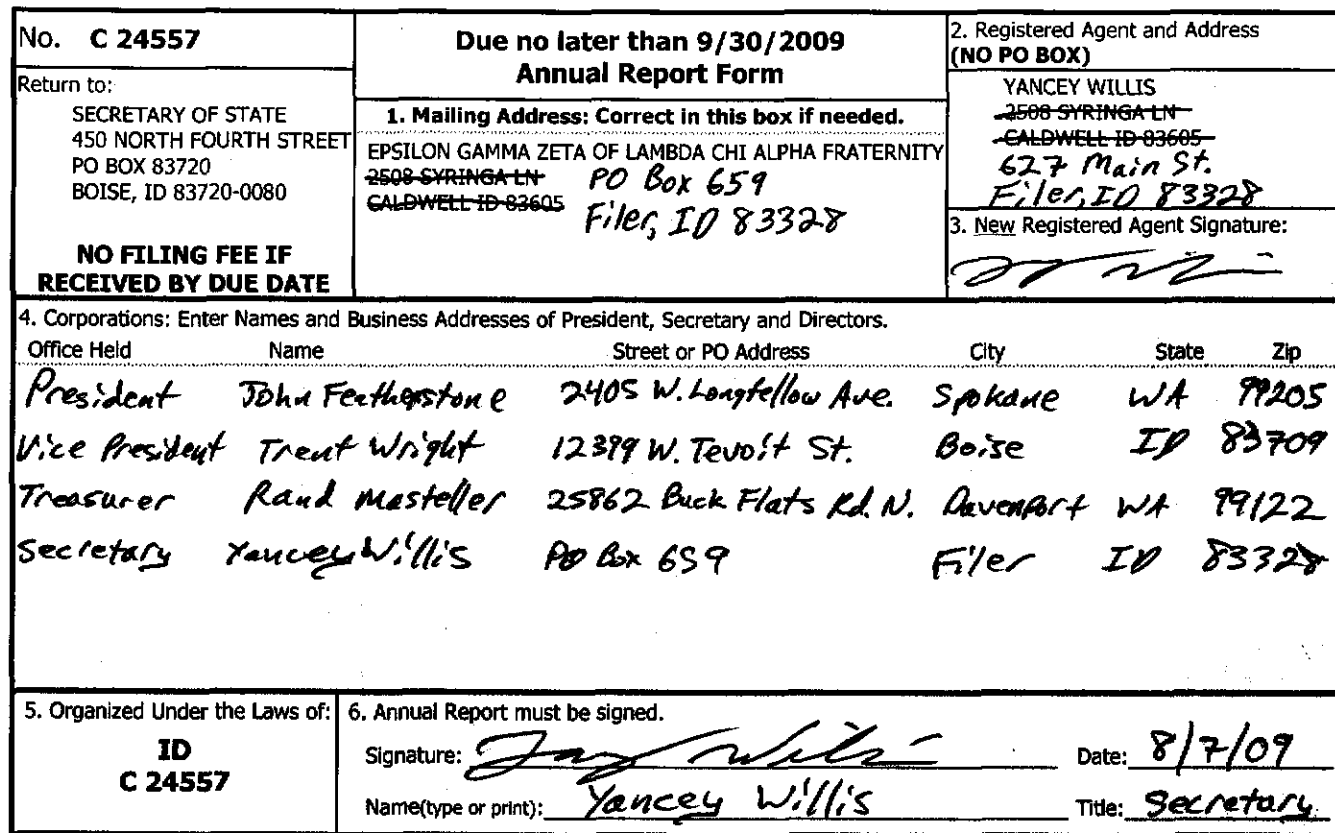 No. C 24557
Return to:
SECRETARY OF STATE
450 NORTH FOURTH STREET
PO BOX 83720
BOISE, ID 83720-0080
NO FILING FEE IF
RECEIVED BY DUE DATE
Due no later than 9/30/2009
Annual Report Form
1. Mailing Address: Correct in this box if needed.
EPSILON GAMMA ZETA OF LAMBDA CHI ALPHA FRATERNITY
2508 SYRINGA LN
CALDWELL ID 83605
PO Box 659
Filer, ID 83328
2. Registered Agent and Address
(NO PO BOX)
YANCEY WILLIS
2508 SYRINGA LN
CALDWELL ID 83605
627 Main St.
Filer, ID 83328
3. New Registered Agent Signature:
4. Corporations: Enter Names and Business Addresses of President, Secretary and Directors.
Office Held Name Street or PO Address City State Zip
President John Featherstone 2405 W. Longfellow Ave. Spokane WA 99205
Vice President Trent Wright 12399 W. Tevoit St. Boise ID 83709
Treasurer Rand Masteller 25862 Buck Flats Rd. N. Davenport WA 99122
Secretary Yancey Willis PO Box 659 Filer ID 83328
5. Organized Under the Laws of:
ID
C 24557
6. Annual Report must be signed.
Signature: Date: 8/7/09
Name(type or print): Yancey Willis Title: Secretary